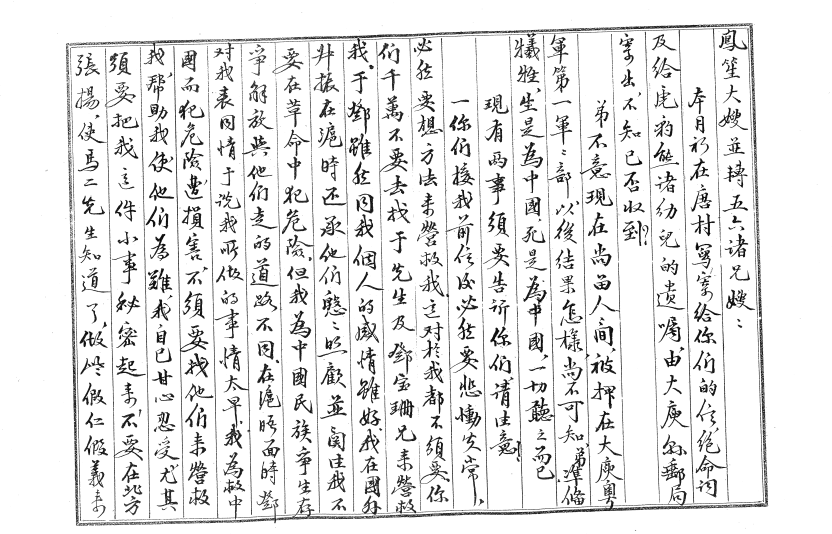 鳳笙大嫂並轉五六諸兄嫂：
本月初在唐村寫寄給你們的信、絕命詞
及給虎豹熊諸幼兒的遺囑，由大庾縣郵局
寄出不知已否收到？
弟不意現在尚留人間，被押在大庾粵
軍第一軍軍部，以後結果怎樣，尚不可知，弟準備
犧牲，生是為中國，死是為中國，一切聽之而已
現有兩事須要告訴你們，請注意！
一你們接我前信後必然要悲慟失常，
必然要想方法來營救我，這對於我都不須要，你
們千萬不要去找于先生及鄧寶珊兄來營救
我。于鄧雖然同我個人的感情雖好，我在國外
叔振在滬時还承他們慇慇照顧並關注我不
要在革命中犯危險，但我為中國民族爭生存
爭解放與他們走的道路不同。在滬晤面時鄧
對我表同情，于說我所做的事情太早。我為救中
國而犯危險遭損害，不須要找他們來營救
我，帮助我使他們為難，我自己甘心忍受，尤其
須要把我這件小事秘密起來，不要在北方
張揚，使馬二先生知道了，做些假仁假義來